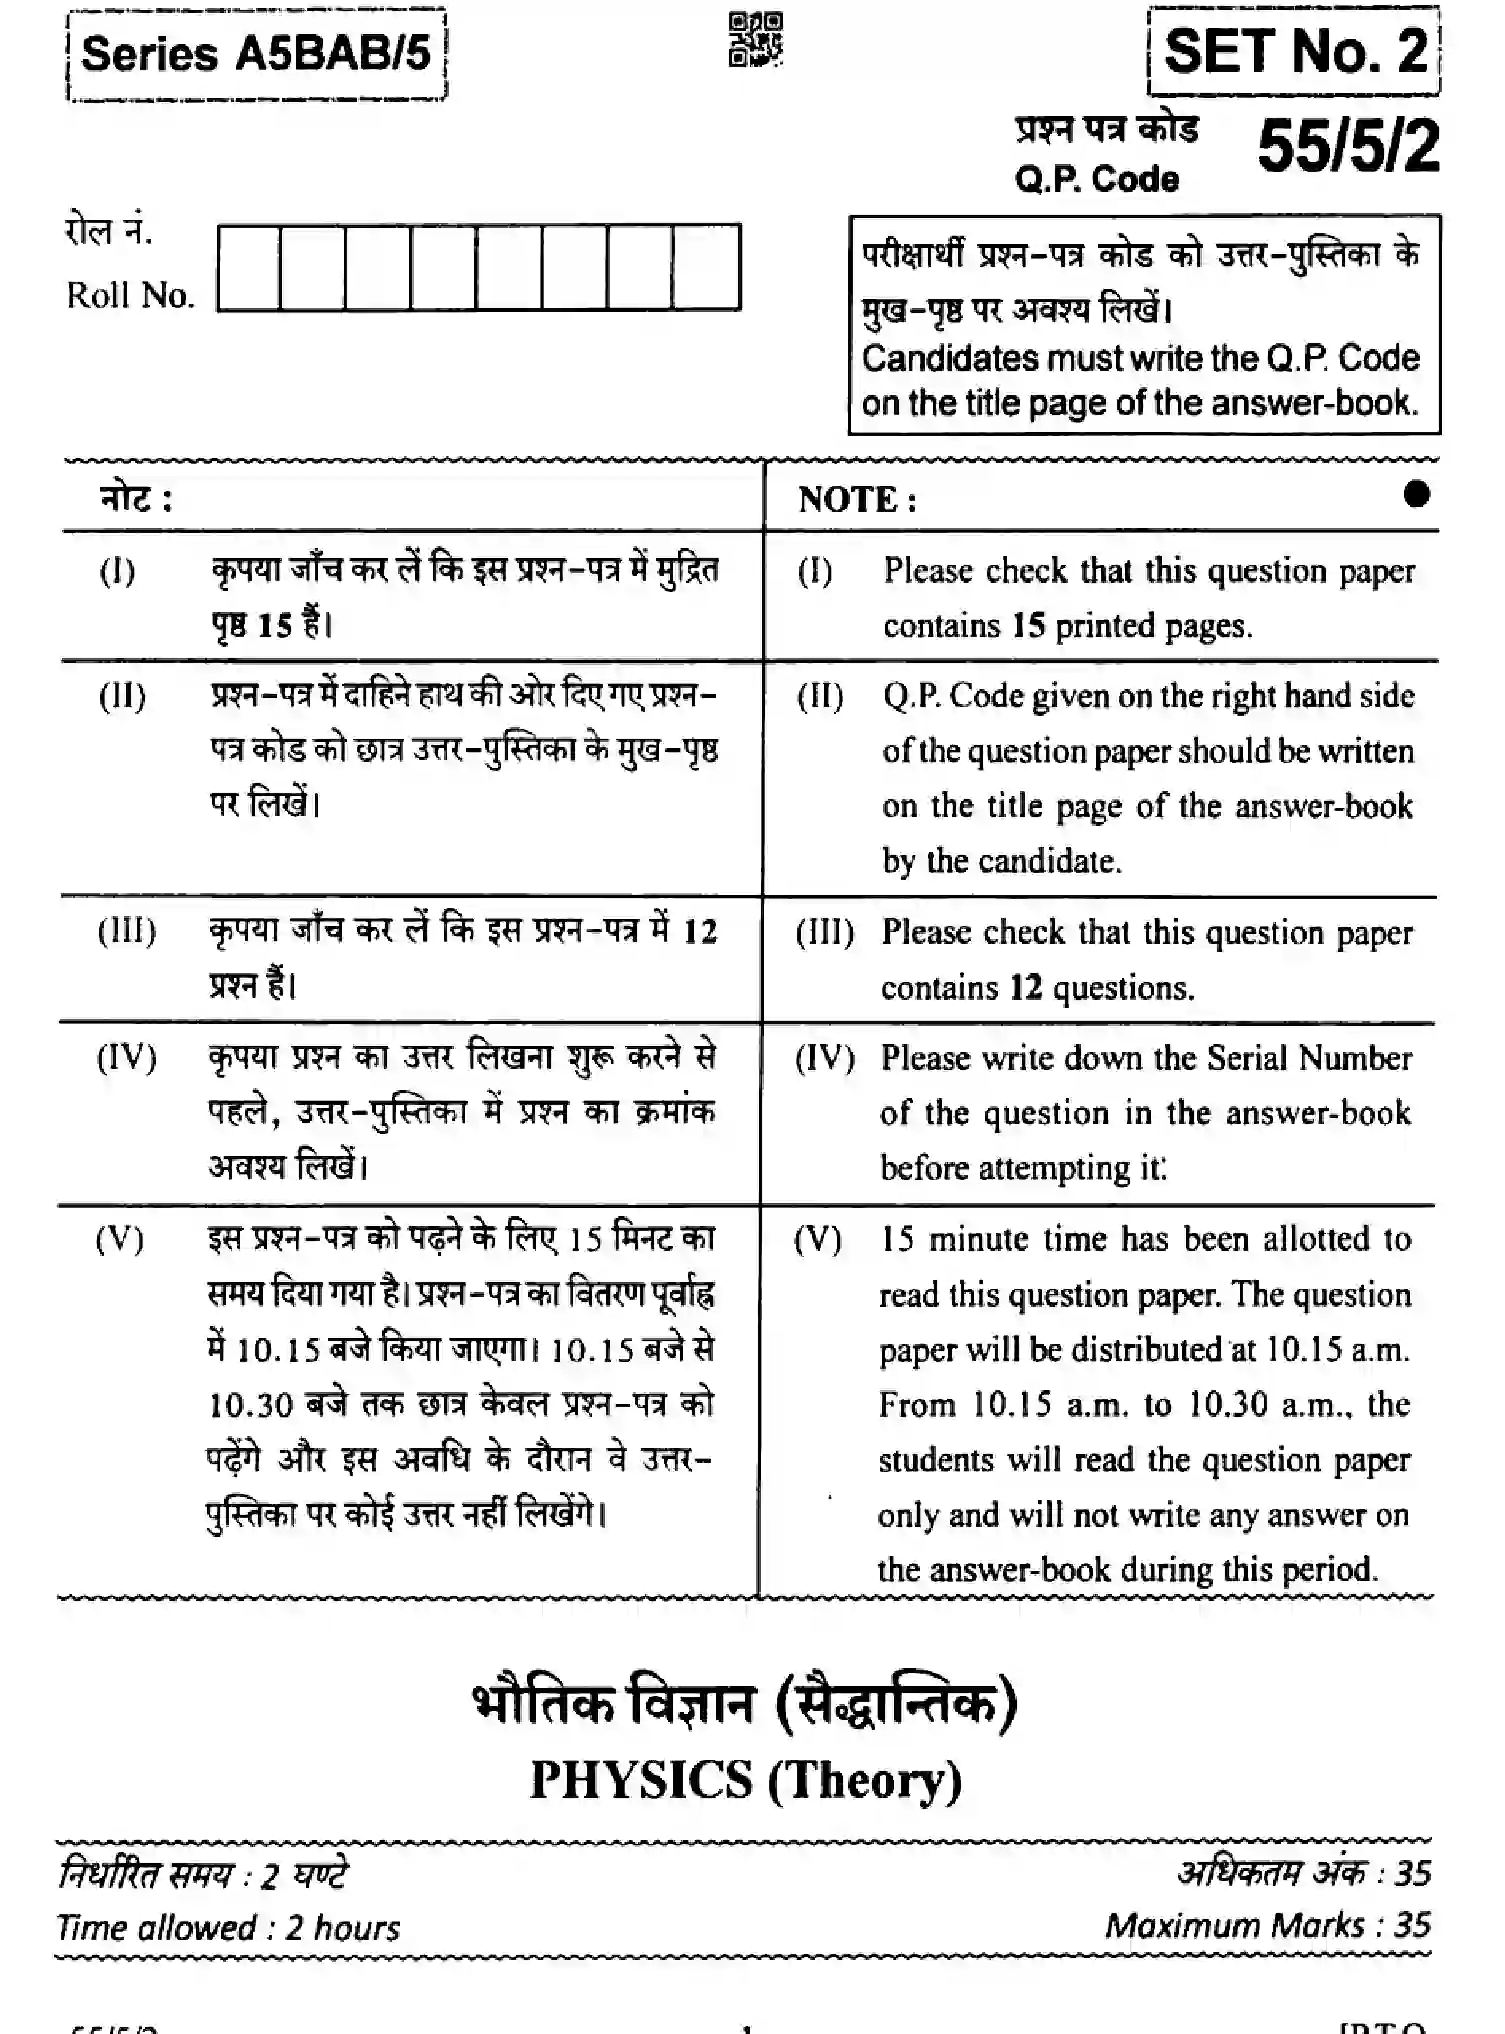 Series A5BAB/5
SET No. 2
प्रश्न पत्र कोड
Q.P. Code
55/5/2
रोल नं.
Roll No.
परीक्षार्थी प्रश्न-पत्र कोड को उत्तर-पुस्तिका के
मुख-पृष्ठ पर अवश्य लिखें।
Candidates must write the Q.P. Code
on the title page of the answer-book.
नोट :
(I) कृपया जाँच कर लें कि इस प्रश्न-पत्र में मुद्रित
पृष्ठ 15 हैं।
(II) प्रश्न-पत्र में दाहिने हाथ की ओर दिए गए प्रश्न-
पत्र कोड को छात्र उत्तर-पुस्तिका के मुख-पृष्ठ
पर लिखें।
(III) कृपया जाँच कर लें कि इस प्रश्न-पत्र में 12
प्रश्न हैं।
(IV) कृपया प्रश्न का उत्तर लिखना शुरू करने से
पहले, उत्तर-पुस्तिका में प्रश्न का क्रमांक
अवश्य लिखें।
(V) इस प्रश्न-पत्र को पढ़ने के लिए 15 मिनट का
समय दिया गया है। प्रश्न-पत्र का वितरण पूर्वाह्न
में 10.15 बजे किया जाएगा। 10.15 बजे से
10.30 बजे तक छात्र केवल प्रश्न-पत्र को
पढ़ेंगे और इस अवधि के दौरान वे उत्तर-
पुस्तिका पर कोई उत्तर नहीं लिखेंगे।
NOTE :
(I) Please check that this question paper
contains 15 printed pages.
(II) Q.P. Code given on the right hand side
of the question paper should be written
on the title page of the answer-book
by the candidate.
(III) Please check that this question paper
contains 12 questions.
(IV) Please write down the Serial Number
of the question in the answer-book
before attempting it.
(V) 15 minute time has been allotted to
read this question paper. The question
paper will be distributed at 10.15 a.m.
From 10.15 a.m. to 10.30 a.m., the
students will read the question paper
only and will not write any answer on
the answer-book during this period.
भौतिक विज्ञान (सैद्धान्तिक)
PHYSICS (Theory)
निर्धारित समय : 2 घण्टे
अधिकतम अंक : 35
Time allowed : 2 hours
Maximum Marks : 35
55/5/2